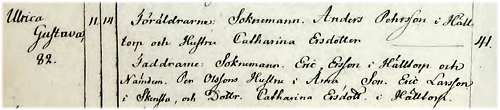 Ulrica 11. 14. Föräldrarne: Soknemann. Anders Pehrsson i Hått
Gustava, torp och Hustru Catharina Ersdotter 41.
82. Faddrarne: Soknemann. Eric Ersson i Håttorp och
Nämdem. Per Olssons Hustru i Åma Son. Eric Larsson
i Skensta, och Dottr. Catharina Ersdott i Håttorp.